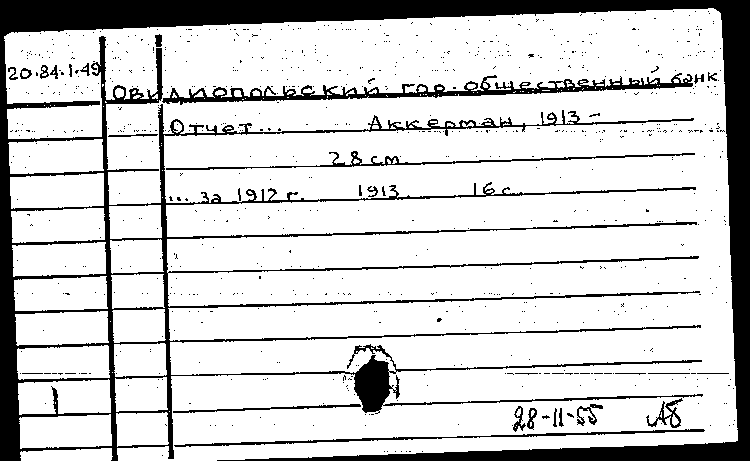 20.84.1.49
Овидиопольский гор. общественный банк
Отчет... Аккерман, 1913 -
28 см.
... за 1912 г. 1913. 16 с.
28-11-55 АБ